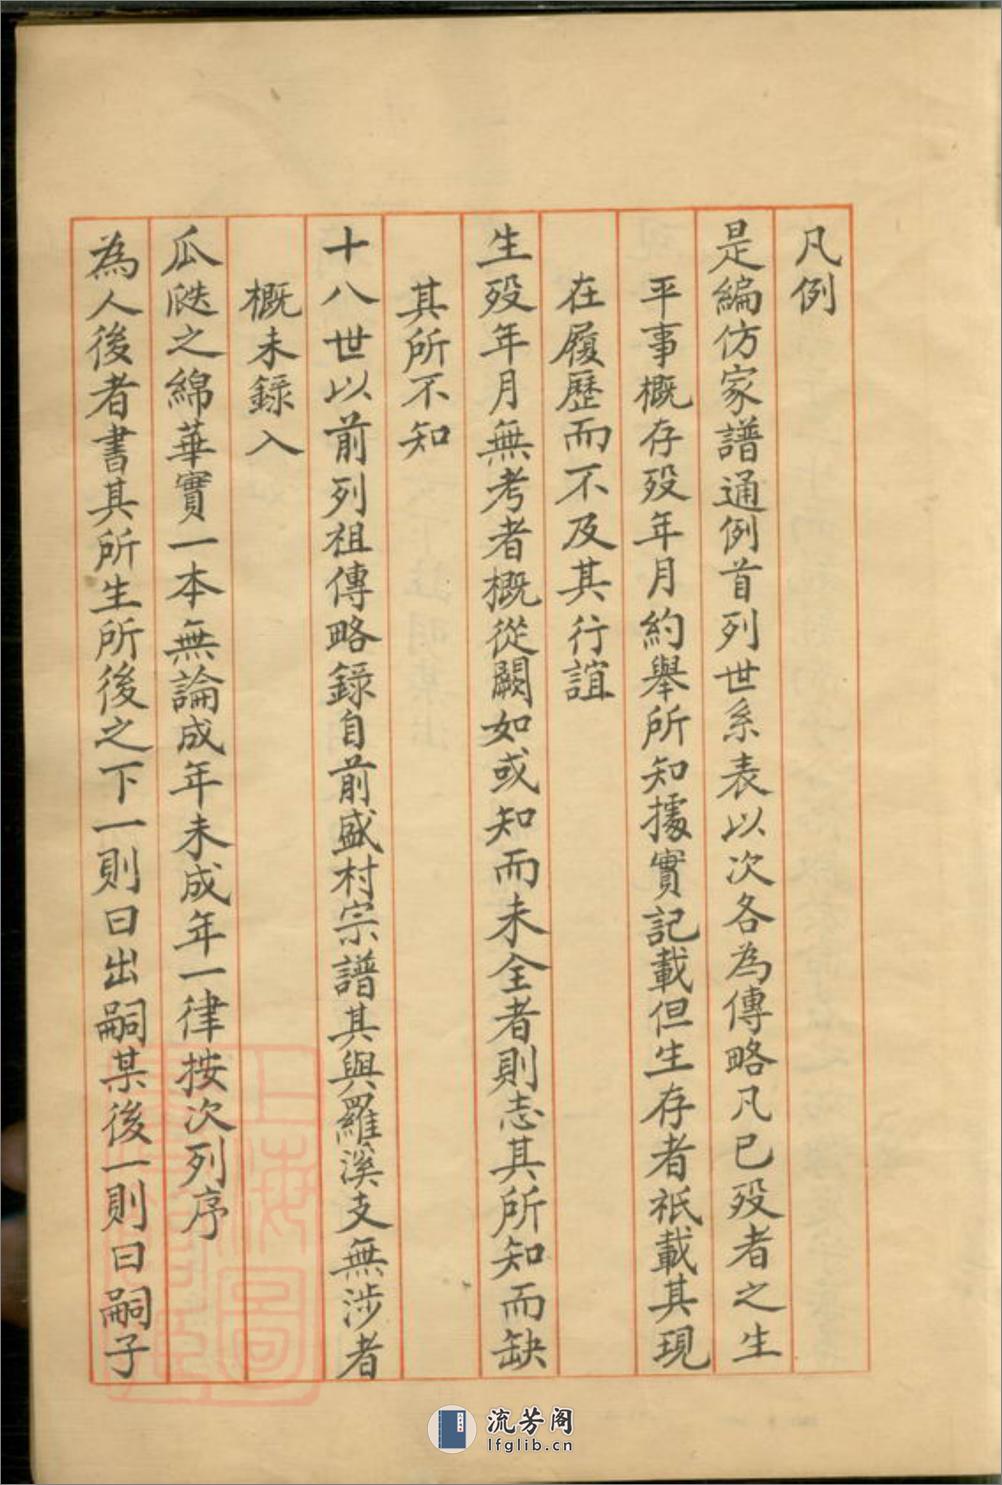 凡例
是編仿家譜通例首列世系表以次各為傳略凡已歿者之生
平事概存歿年月約舉所知據實記載但生存者祇載其現
在履歷而不及其行誼
生歿年月無考者概從闕如或知而未全者則志其所知而缺
其所不知
十八世以前列祖傳略錄自前盛村宗譜其與羅溪支無涉者
概未錄入
瓜瓞之綿華實一本無論成年未成年一律按次列序
為人後者書其所生所後之下一則曰出嗣某後一則曰嗣子
流芳阁
lfglib.cn